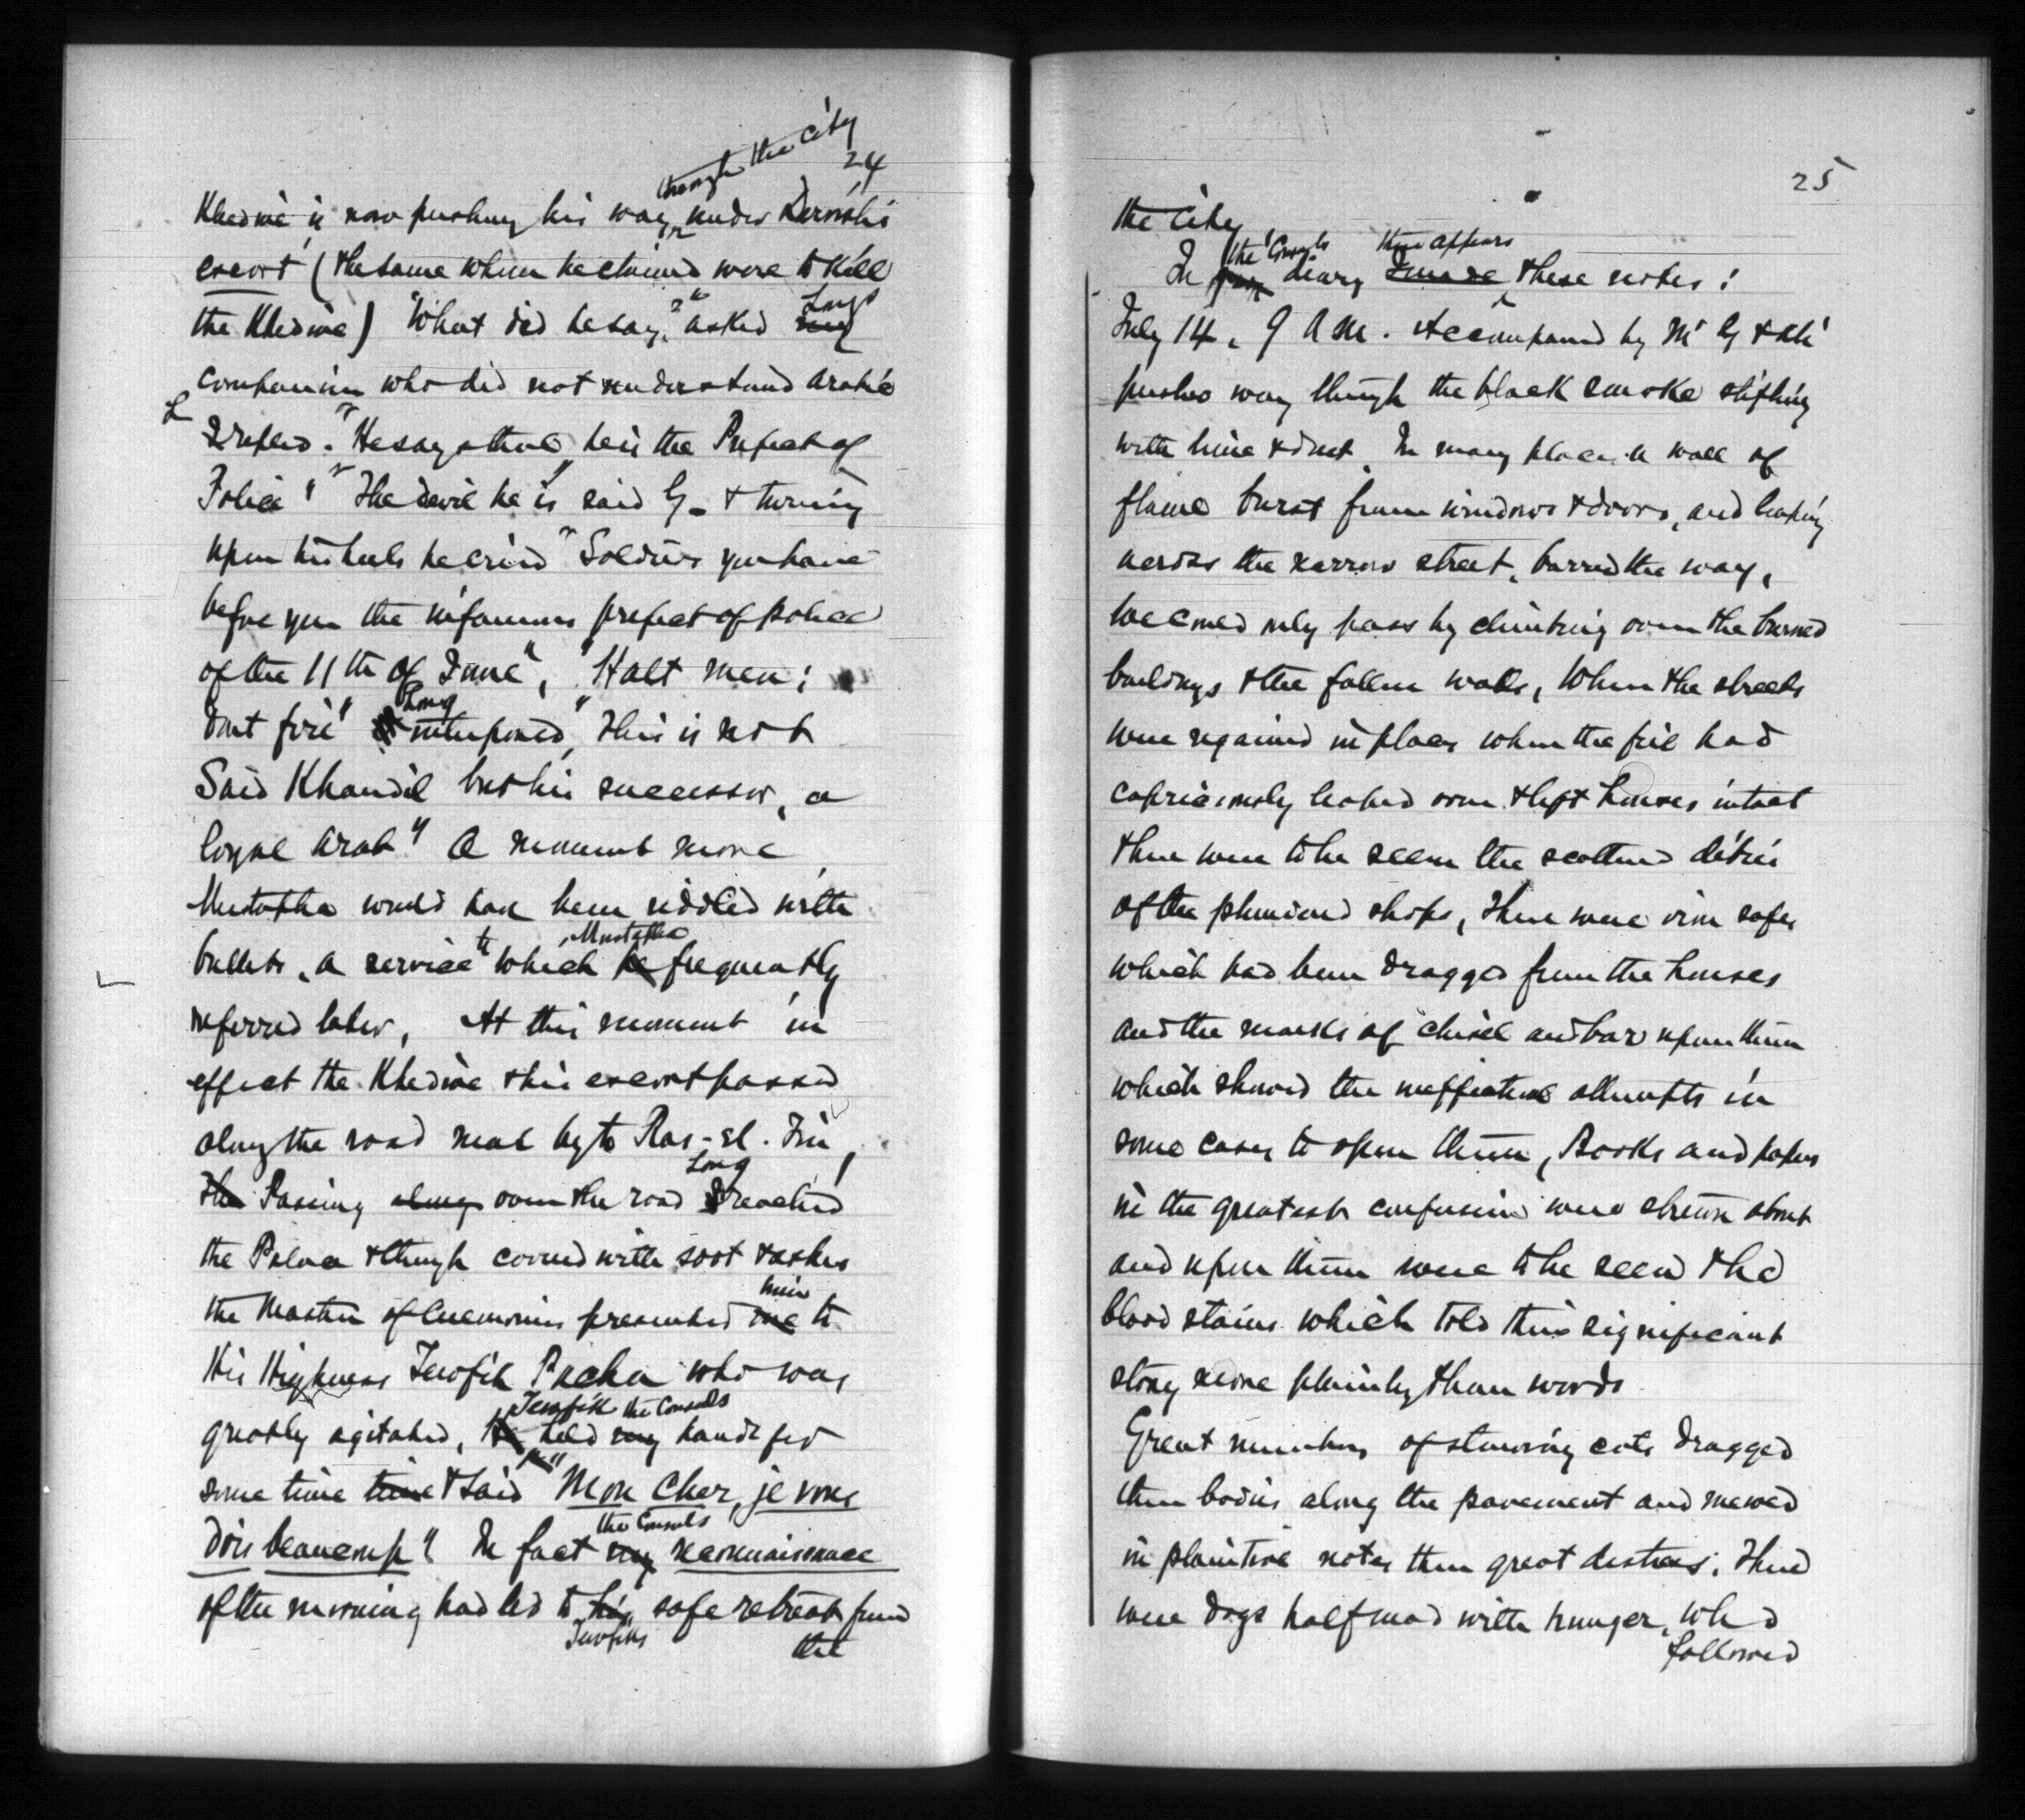 through the city
24
Khedive is now pushing his way under Dervish's
escort (the same whom he claimed were to kill
the Khedive) "What did he say?" asked my Long's
companion who did not understand Arabic
L
I replied. "He says that he is the Prefect of
Police" "The devil he is" said G- & turning
upon his heels he cried "Soldiers you have
before you the infamous prefect of police
of the 11th of June", "Halt men;
dont fire" Long interposed, "This is not
Said Khandil but his successor, a
loyal Arab" A moment more
Mustapha would have been riddled with
bullets, a service to which he Mustapha frequently
referred later, At this moment in
effect the Khedive & his escort passed
along the road near by to Ras-el-Tin,
The Passing along over the road I Long reached
the Palace & though covered with soot & ashes
the Master of Ceremonies presented me him to
His Highness Tewfik Pacha who was
greatly agitated, He Tewfik held my the Consuls hands for
some time time & said "Mon Cher, je vous
dois beaucoup" In fact my the Consuls reconnaissance
of the morning had led to his Tewfiks safe retreat from
the
25
the City
In my the Consuls diary I made there appears these notes:
July 14, 9 A M. Accompanied by Mr G & Ali
pushed way through the black smoke stifling
with lime & dust. In many places a wall of
flame burst from windows & doors, and leaping
across the narrow street, barred the way,
we could only pass by climbing over the burned
buildings & the fallen walls, When the streets
were regained in places where the fire had
capriciously leaped over & left houses intact
there were to be seen the scattered débris
of the plundered shops, There were iron safes
which had been dragged from the houses
and the marks of chisel and bar upon them
which showed the ineffectual attempts in
some cases to open them, Books and papers
in the greatest confusion were strewn about
and upon them were to be seen the
blood stains which told this significant
story more plainly than words
Great numbers of starving cats dragged
their bodies along the pavement and mewed
in plaintive notes their great distress. There
were dogs half mad with hunger, who
followed